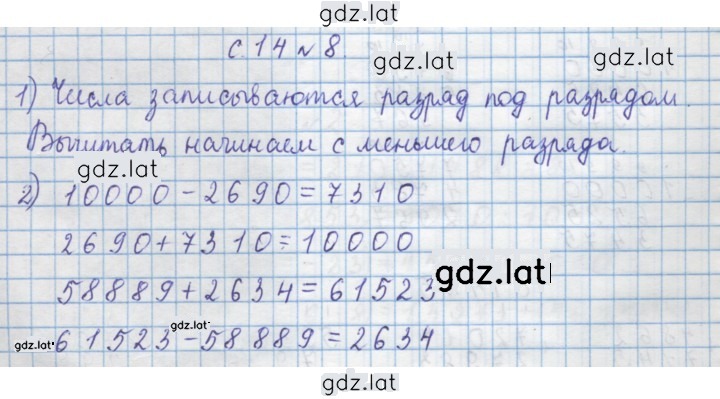 gdz.lat
с. 14 № 8.
gdz.lat
1) Числа записываются разряд под разрядом.
Вычитать начинаем с меньшего разряда.
gdz.lat
2) 10000 - 2690 = 7310
2690 + 7310 = 10000
gdz.lat
58889 + 2634 = 61523
gdz.lat
gdz.lat
61523 - 58889 = 2634
gdz.lat